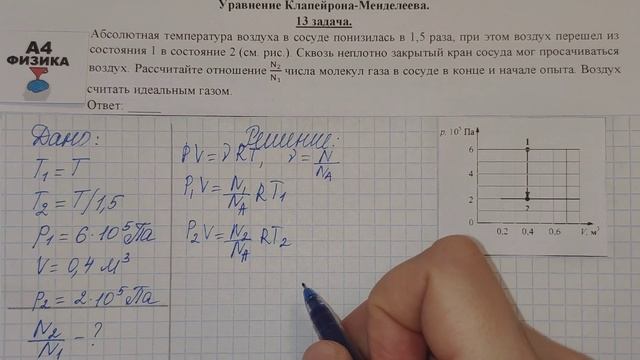 Уравнение Клапейрона-Менделеева.
13 задача.
А4
ФИЗИКА
Абсолютная температура воздуха в сосуде понизилась в 1,5 раза, при этом воздух перешел из
состояния 1 в состояние 2 (см. рис.). Сквозь неплотно закрытый кран сосуда мог просачиваться
воздух. Рассчитайте отношение N₂/N₁ числа молекул газа в сосуде в конце и начале опыта. Воздух
считать идеальным газом.
Ответ: _____
Дано:
T₁ = T
T₂ = T/1,5
P₁ = 6·10⁵ Па
V = 0,4 м³
P₂ = 2·10⁵ Па
N₂/N₁ - ?
Решение:
PV = νRT, ν = N/N_A
P₁V = N₁/N_A RT₁
P₂V = N₂/N_A RT₂
p, 10⁵ Па
6
4
2
0
1
2
0,2 0,4 0,6 V, м³